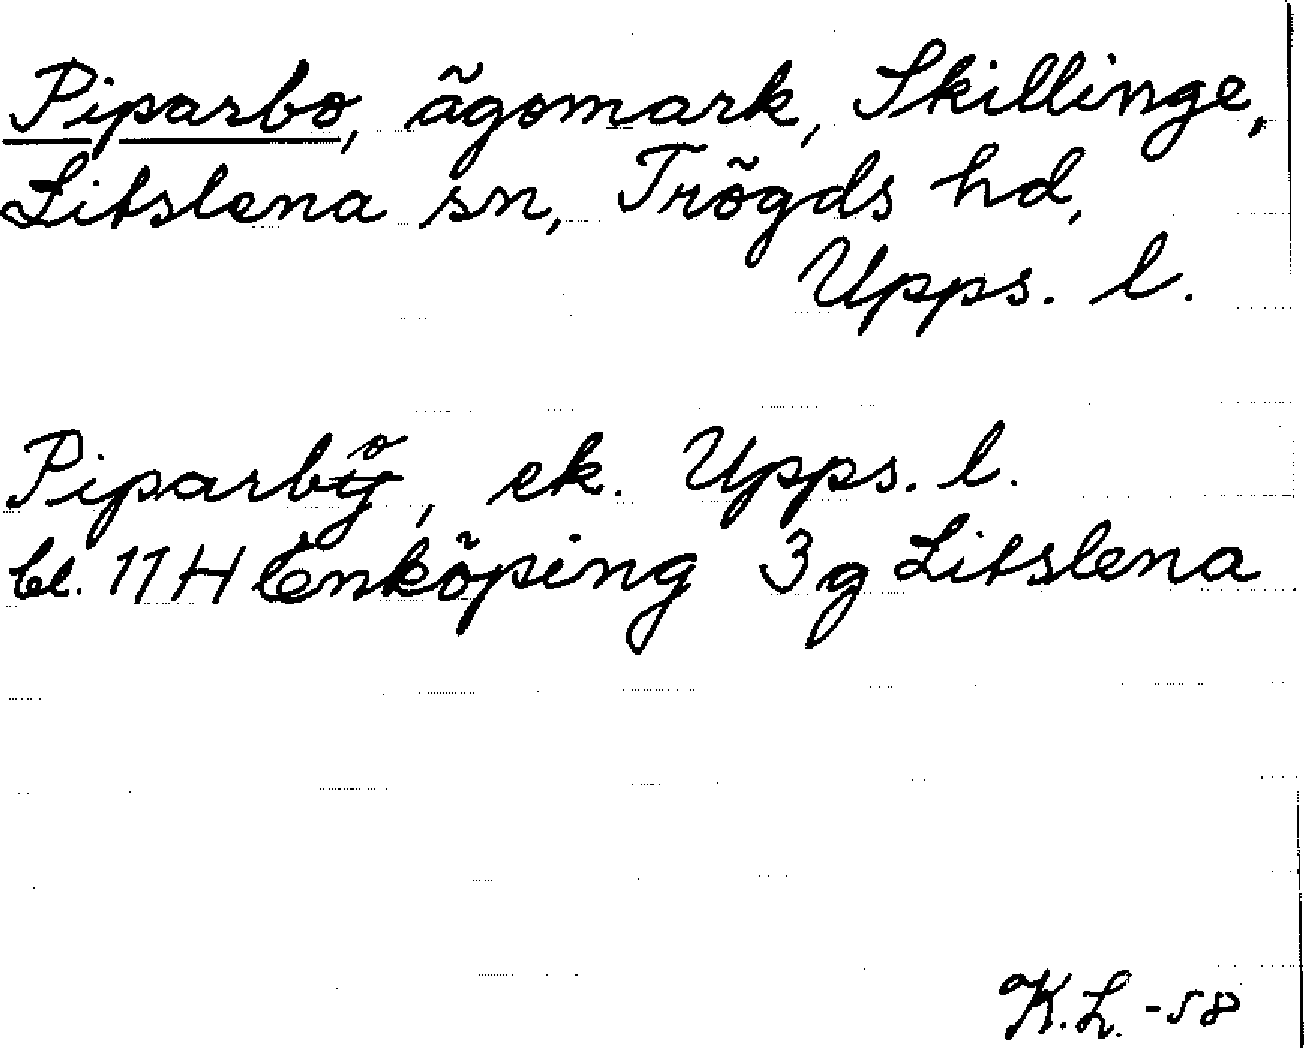 Piparbo, ägomark, Skillinge,
Litslena sn, Trögds hd,
Upps. l.
Piparbo, ek. Upps. l.
bl. 11H Enköping 3g Litslena
K.L. -58